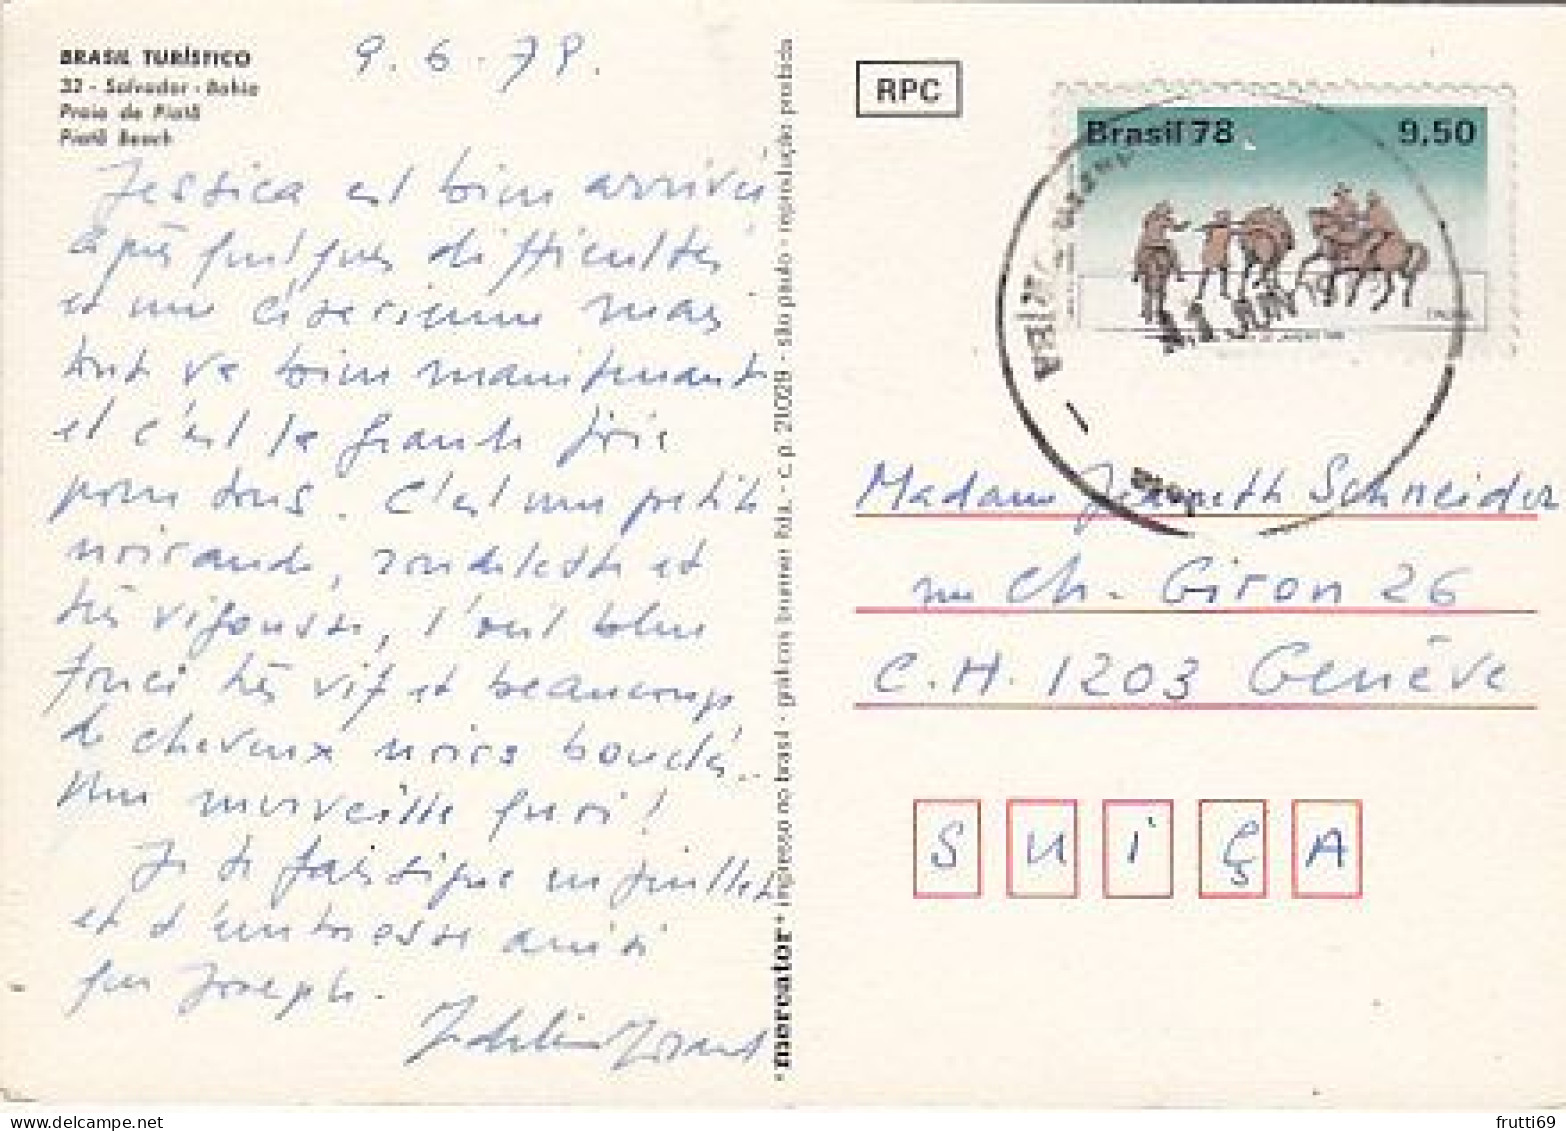 BRASIL TURÍSTICO
32 - Salvador - Bahia
Praia de Piatã
Piatã Beach
9.6.79.
Jessica est bien arrivée
après quelques difficultés
et une césarienne mais
tout va bien maintenant
et c'est la grande joie
pour tous. C'est une petite
noiraude, rondelette et
très vigousse, l'œil bleu
foncé très vif et beaucoup
de cheveux noirs bouclés.
Une merveille quoi!
Je te fais signe en juillet
et t'embrasse ainsi
que Joseph.
*mercator* ingresso no brasil - gráficos brunner ltda. - c. p. 21029 - são paulo - reprodução proibida
RPC
Brasil 78 9,50
JUN
Madame Jeanneth Schneider
Ch. Giron 26
C.H. 1203 Genève
S U I Ç A
frutti69